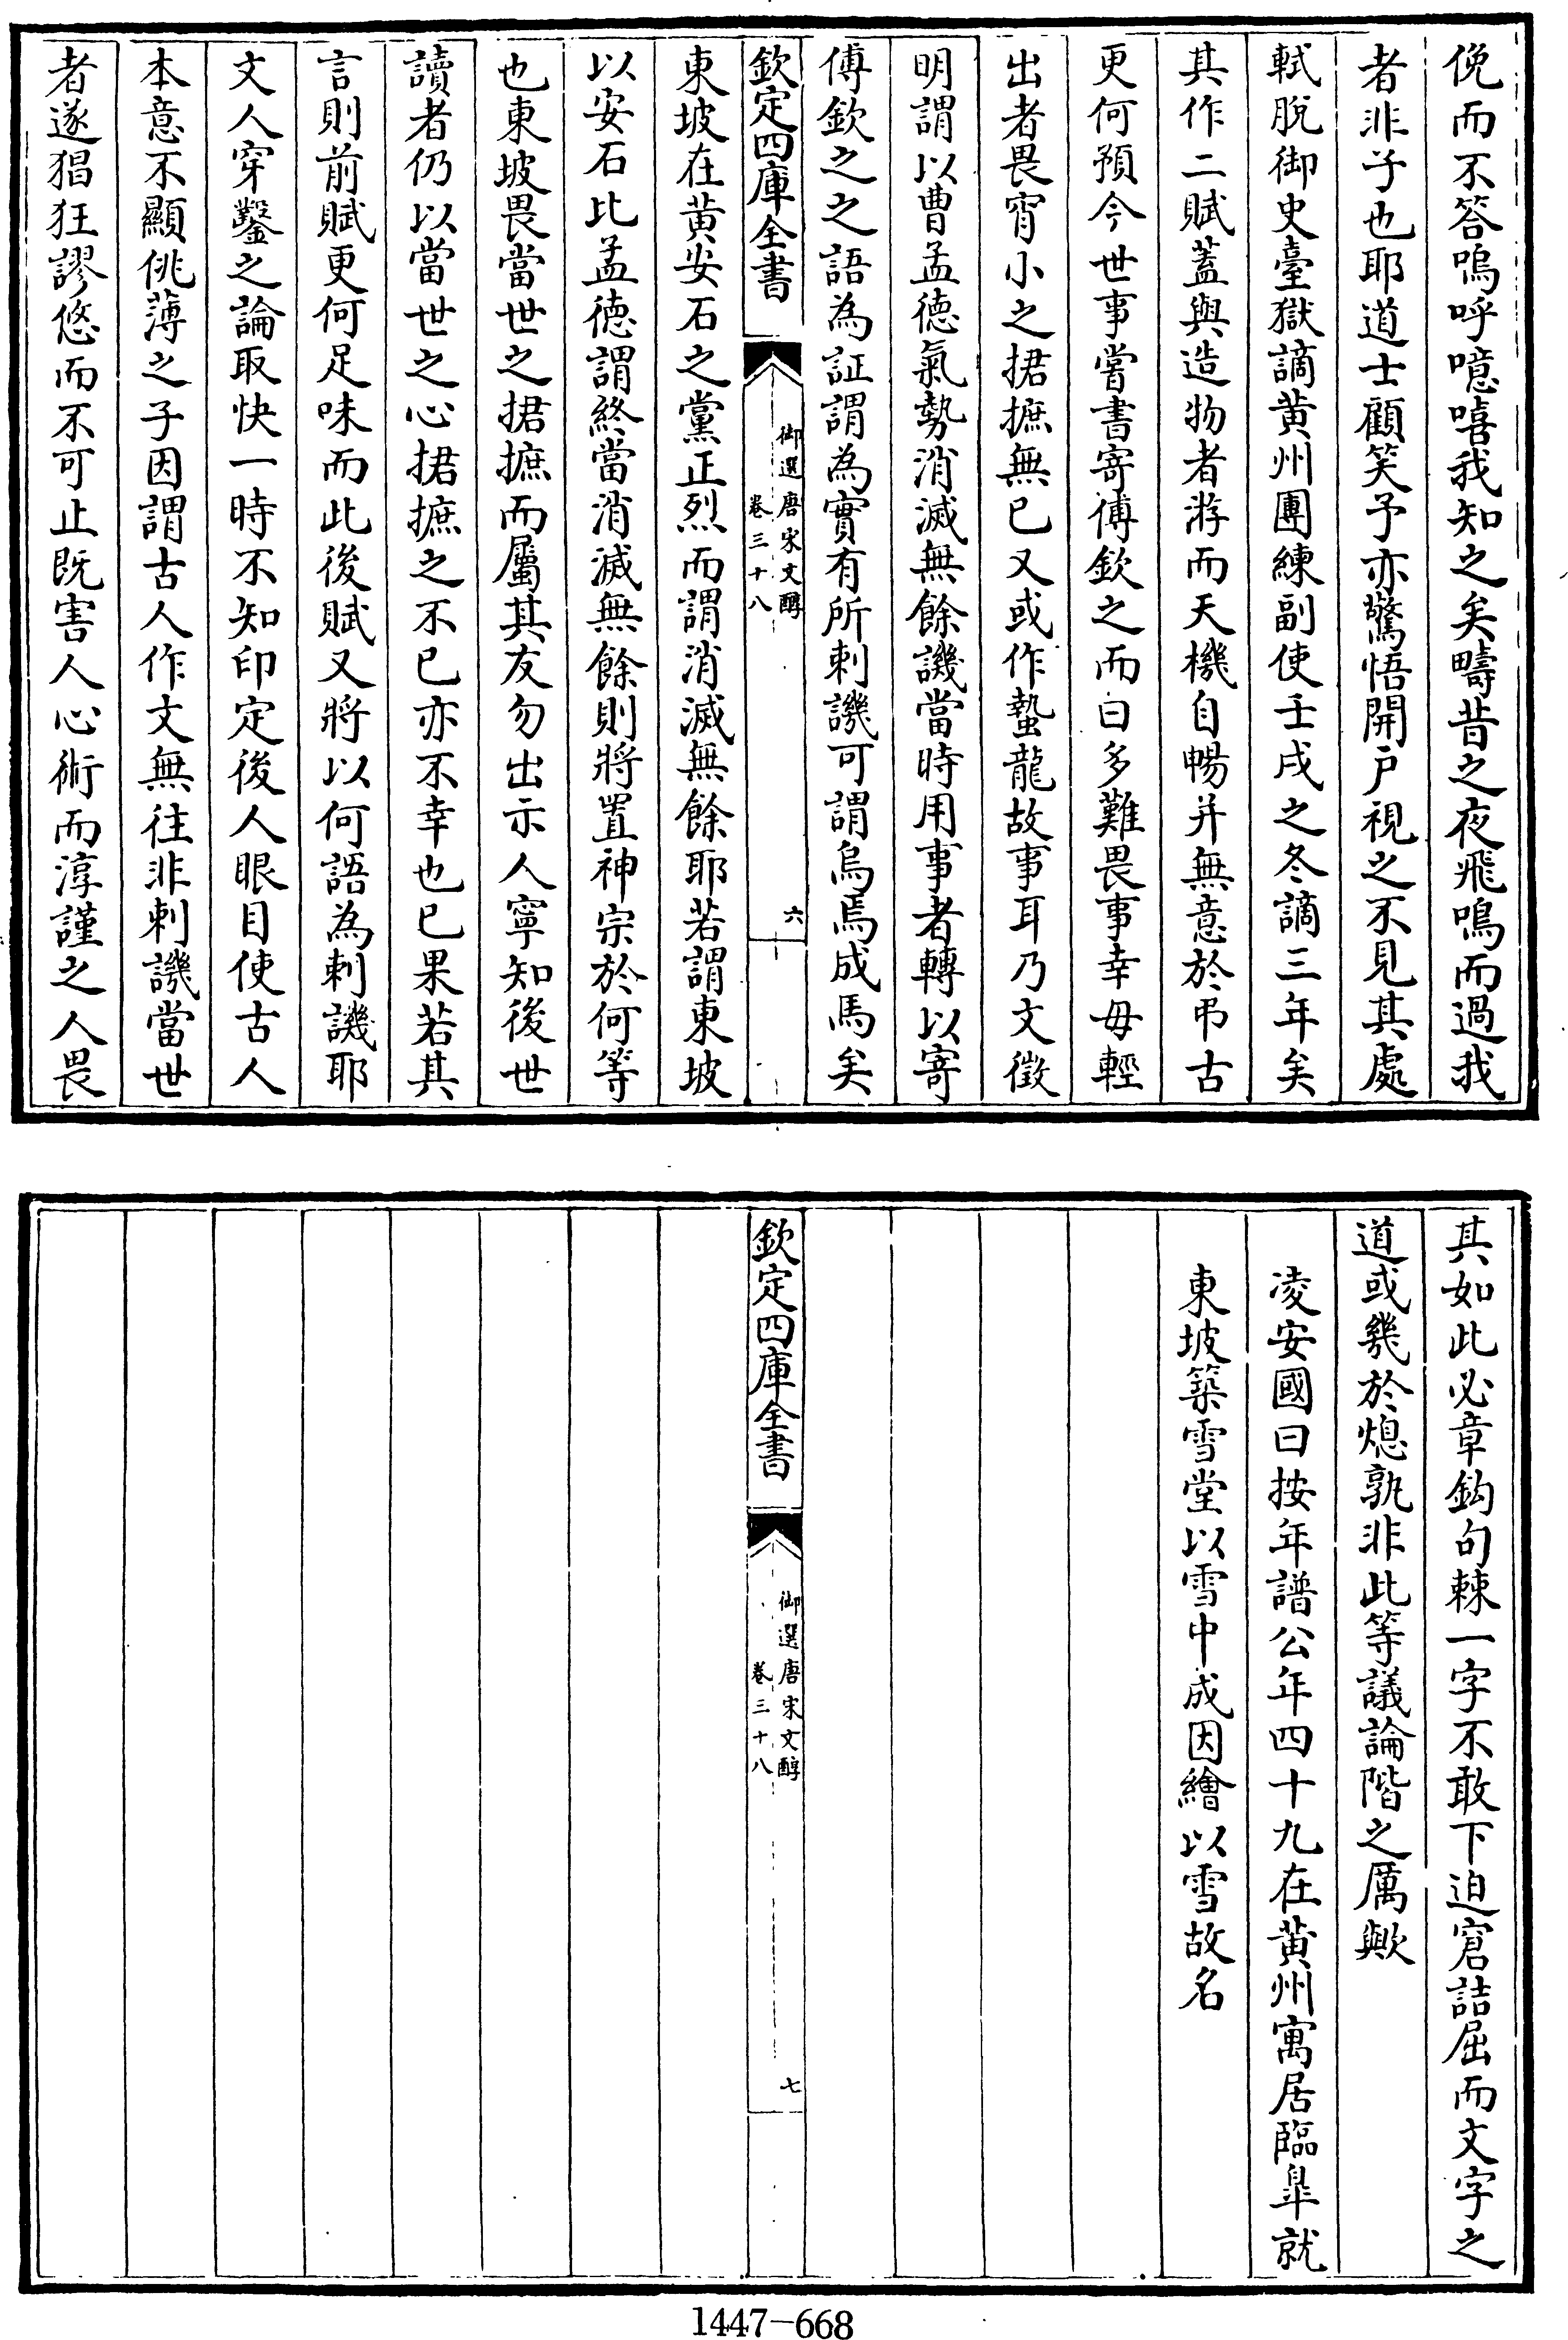 俛而不答嗚呼噫嘻我知之矣疇昔之夜飛鳴而過我
者非子也耶道士顧笑予亦驚悟開户視之不見其處
軾脫御史臺獄謫黃州團練副使壬戌之冬謫三年矣
其作二賦蓋與造物者游而天機自暢并無意於弔古
更何預今世事嘗書寄傅欽之而曰多難畏事幸毋輕
出者畏宵小之捃摭無已又或作蟄龍故事耳乃文徵
明謂以曹孟德氣勢消滅無餘譏當時用事者轉以寄
傅欽之之語為証謂為實有所刺譏可謂烏焉成馬矣
欽定四庫全書
御選唐宋文醇
卷三十八
六
東坡在黃安石之黨正烈而謂消滅無餘耶若謂東坡
以安石比孟德謂終當消滅無餘則將置神宗於何等
也東坡畏當世之捃摭而屬其友勿出示人寧知後世
讀者仍以當世之心捃摭之不已亦不幸也已果若其
言則前賦更何足味而此後賦又將以何語為刺譏耶
文人穿鑿之論取快一時不知印定後人眼目使古人
本意不顯佻薄之子因謂古人作文無往非刺譏當世
者遂猖狂謬悠而不可止既害人心術而淳謹之人畏
其如此必章鈎句棘一字不敢下迫窘詰屈而文字之
道或幾於熄孰非此等議論階之厲歟
凌安國曰按年譜公年四十九在黃州寓居臨臯就
東坡築雪堂以雪中成因繪以雪故名
欽定四庫全書
御選唐宋文醇
卷三十八
七
1447-668